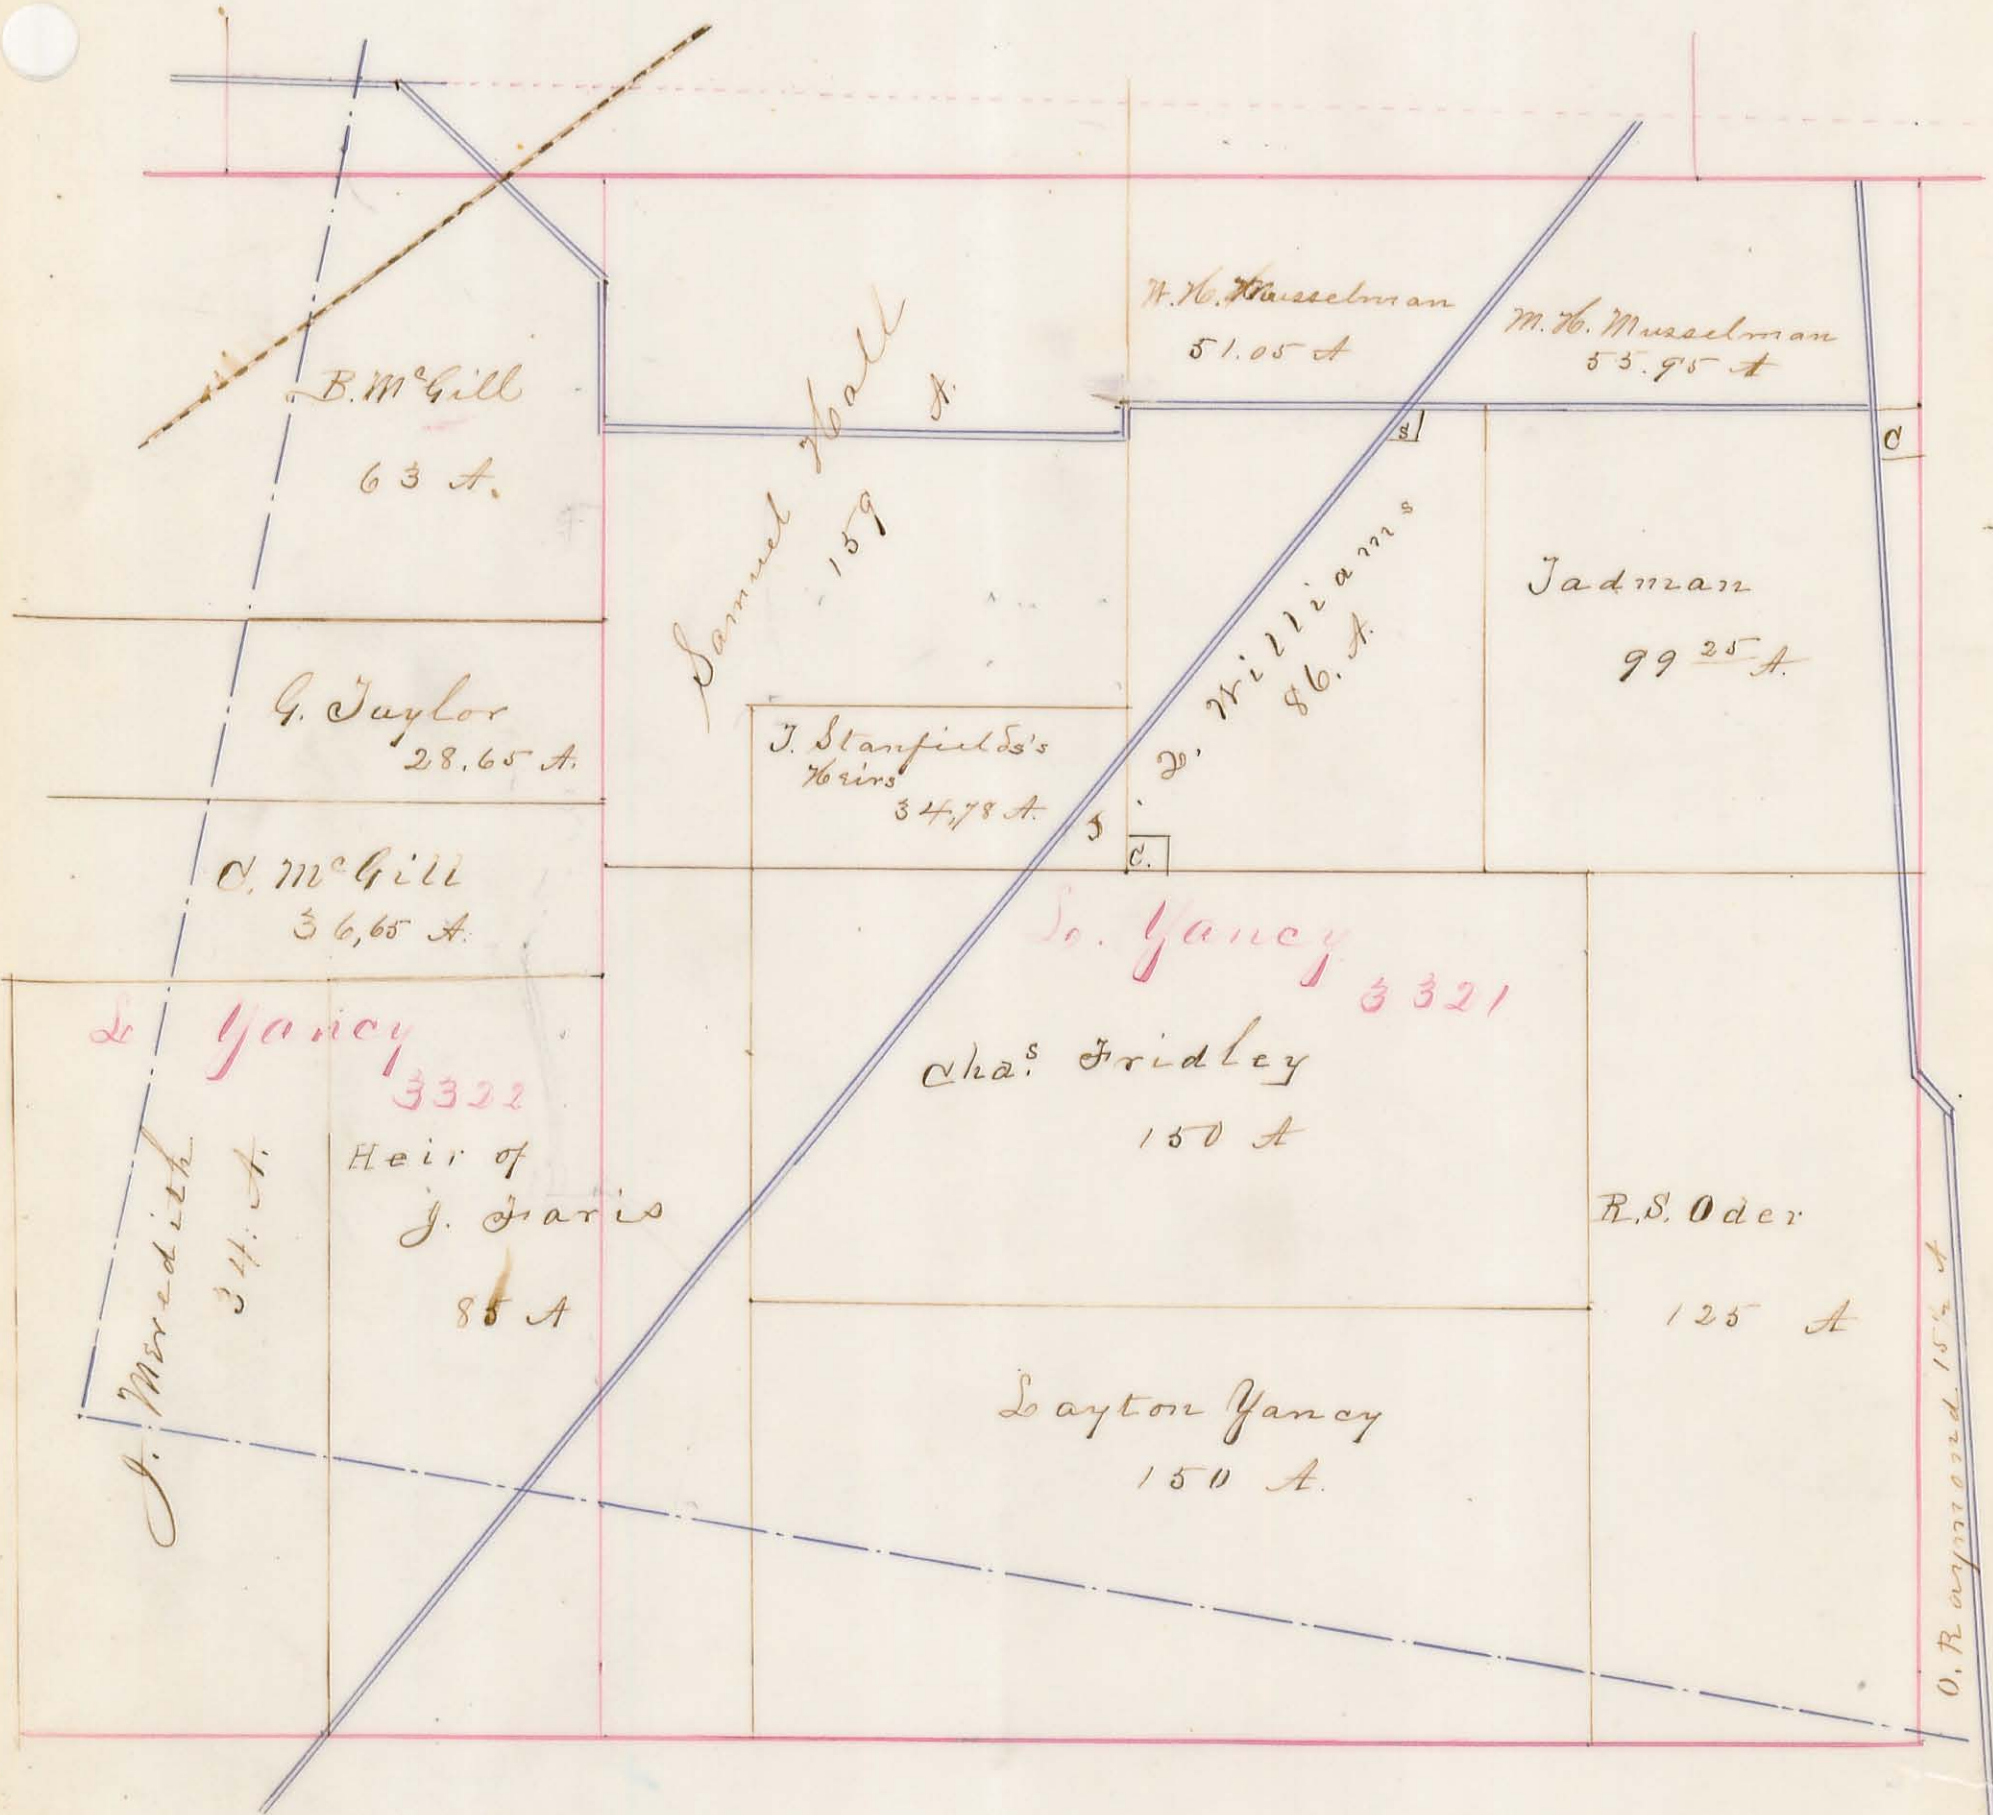 B. McGill
63 A.
Samuel Hall
159 A.
W. H. Musselman
51.05 A
M. H. Musselman
55.95 A
S
C
G. Taylor
28.65 A.
T. Stanfields's
Heirs
34,78 A.
Williams
86. A.
Tadman
99 25 A.
C.
C. McGill
36,65 A.
L. Yancy
3321
Chas. Fridley
150 A
L Yancy
3322
Heir of
J. Faris
85 A
J. Meredith
34. A.
R.S. Oder
125 A
Layton Yancy
150 A.
O. Raymond 15½ A